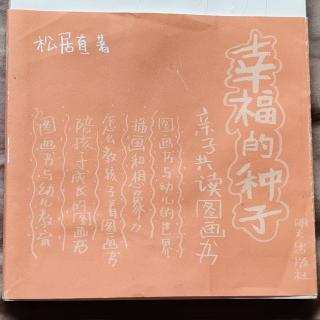 松居直 著
幸福的种子
亲子共读图画书
图画书与幼儿的世界
插画和想象力
怎么教孩子看图画书
陪孩子成长的图画书
图画书与幼儿教育
明天出版社